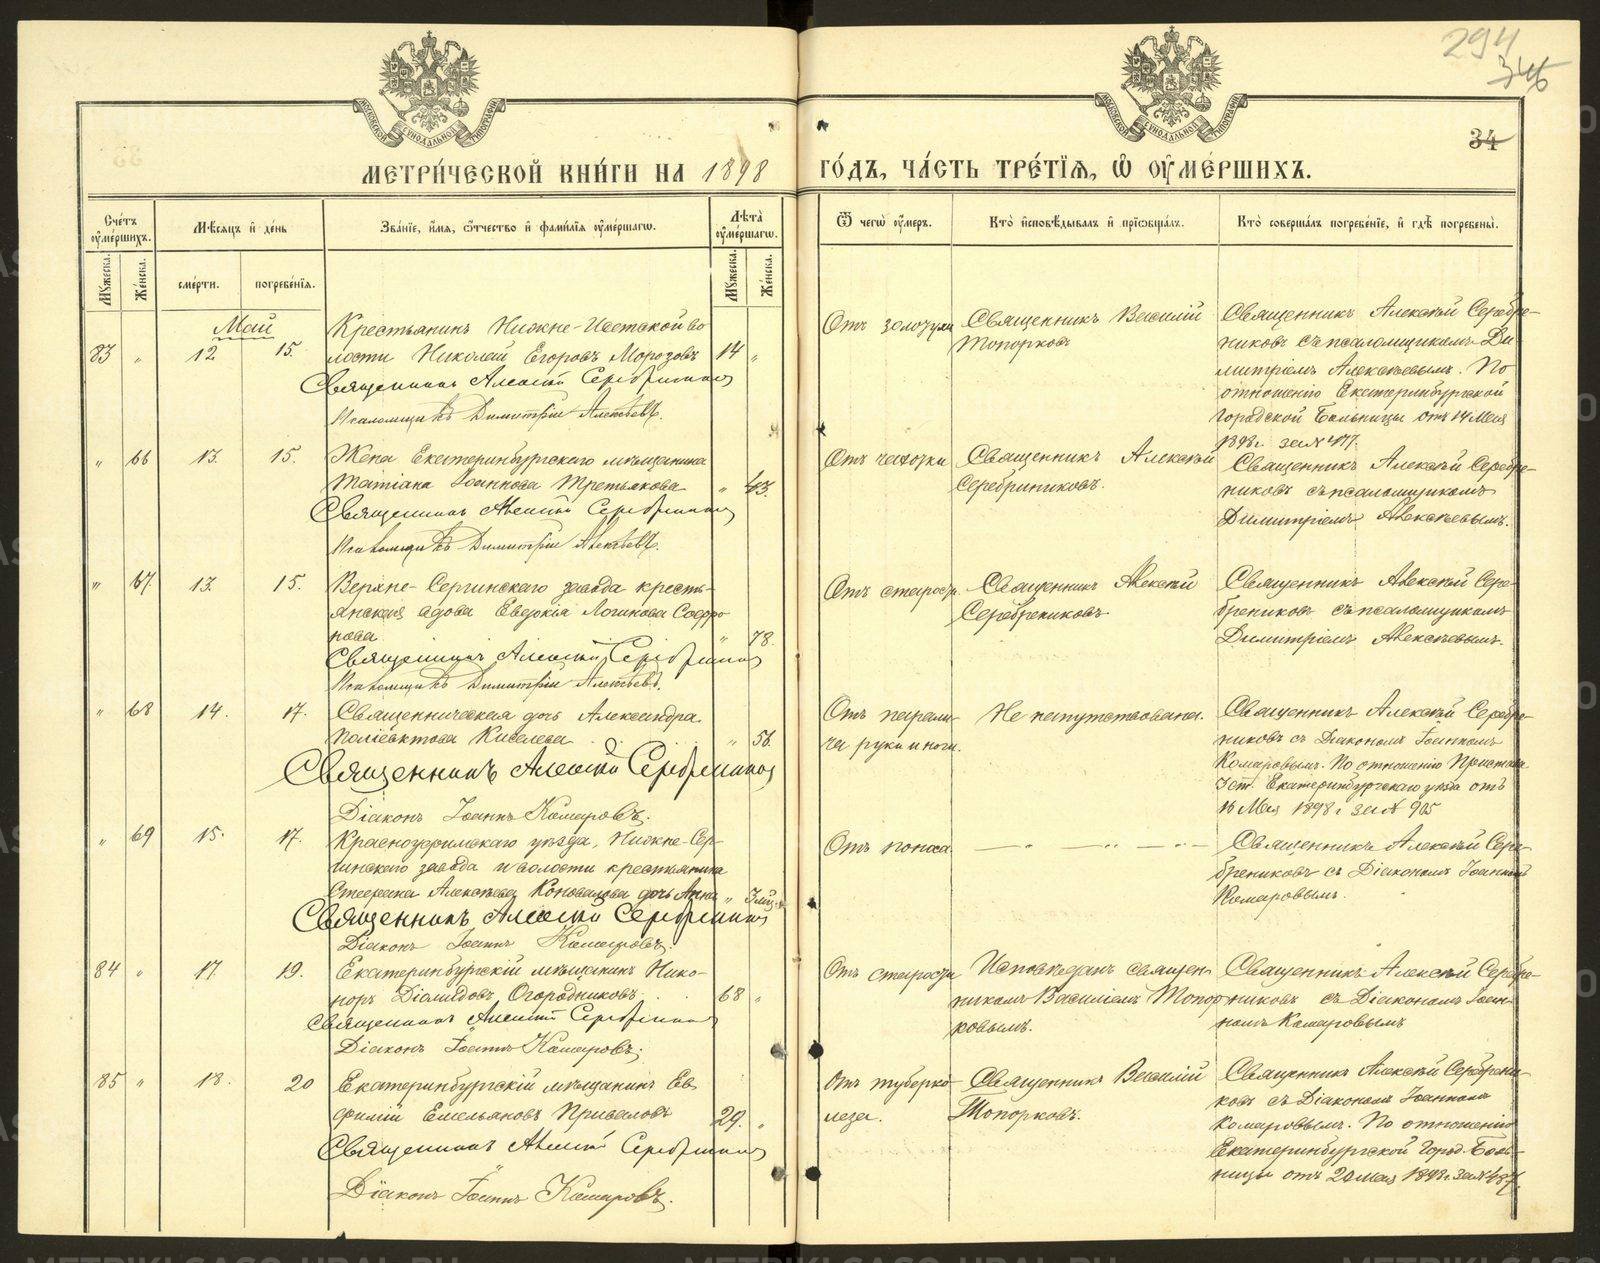 294
346
34
МЕТРИ́ЧЕСКОЙ КНИ́ГИ НА 1898 ГО́ДЪ, ЧА́СТЬ ТРЕ́ТЇѦ, Ѡ ОУМЕ́РШИХЪ.
Сче́тъ оумершихъ.
Мꙋжеска.
Же́нска.
Мѣсѧцъ и де́нь
сме́рти.
погребе́нїѧ.
Зва́нїе, и́мѧ, ѻ́тчество и фами́лїѧ оуме́ршагѡ.
Лѣта̀ оуме́ршагѡ.
Мꙋжеска.
Же́нска.
Ѿ чегѡ̀ оу́меръ.
Кто̀ исповѣдывалъ и прїѡбща́лъ.
Кто̀ соверша́лъ погребе́нїе, и гдѣ̀ погребены̀.
Май
83 " 12 15.
Крестьянинъ Нижне-Исетской во
лости Николай Егоровъ Морозовъ
14 "
Священникъ Алексѣй Серебренниковъ
Псаломщикъ Димитрій Алексѣевъ.
Отъ золотухи
Священникъ Василій
Топорковъ
Священникъ Алексѣй Серебре-
никовъ съ псаломщикомъ Ди
митріемъ Алексѣевымъ. По
отношенію Екатеринбургской
Городской Больницы отъ 14 Мая
1898 г. за № 477.
" 66 13. 15.
Жена Екатеринбургскаго мѣщанина
Татіана Іоаннова Третьякова
" 43.
Священникъ Алексѣй Серебренниковъ
Псаломщикъ Димитрій Алексѣевъ.
Отъ чахотки
Священникъ Алексѣй
Серебрениковъ.
Священникъ Алексѣй Серебре-
никовъ съ псаломщикомъ
Димитріемъ Алексѣевымъ.
" 67. 13. 15.
Верхне-Сергинскаго завода кресть-
янская вдова Евдокія Логинова Софро
нова
" 78.
Священникъ Алексѣй Серебренниковъ
Псаломщикъ Димитрій Алексѣевъ.
Отъ старости.
Священникъ Алексѣй
Серебрениковъ
Священникъ Алексѣй Сере-
брениковъ съ псаломщикомъ
Димитріемъ Алексѣевымъ.
" 68 14. 17.
Священническая дочь Александра
Поліевктова Киселева
" 56.
Священникъ Алексѣй Серебренниковъ
Діаконъ Іоаннъ Комаровъ.
Отъ парали-
ча руки и ноги.
Не напутствована.
Священникъ Алексѣй Серебре-
никовъ съ Діакономъ Іоанномъ
Комаровымъ. По отношенію Пристава
Екатеринбургскаго уѣзда отъ
16 Мая 1898 г за № 905
" 69 15. 17.
Красноуфимскаго уѣзда, Нижне-Сер-
гинскаго завода и волости крестьянина
Стефана Алексѣева Коновалова дочь Анна
" 3 мѣс.
Священникъ Алексѣй Серебренниковъ
Діаконъ Іоаннъ Комаровъ.
Отъ поноса.
— " — " — " —
Священникъ Алексѣй Сере-
брениковъ съ Діакономъ Іоанномъ
Комаровымъ.
84 " 17. 19.
Екатеринбургскій мѣщанинъ Нико-
норъ Діомидовъ Огородниковъ
68 "
Священникъ Алексѣй Серебренниковъ
Діаконъ Іоаннъ Комаровъ.
Отъ старости
Исповѣданъ священ-
никомъ Василіемъ Топор-
ковымъ.
Священникъ Алексѣй Серебре-
никовъ съ Діакономъ Іоан-
номъ Комаровымъ
85 " 18. 20
Екатеринбургскій мѣщанинъ Ев-
фимій Емельяновъ Приваловъ
29. "
Священникъ Алексѣй Серебренниковъ
Діаконъ Іоаннъ Комаровъ.
Отъ туберку-
леза.
Священникъ Василій
Топорковъ.
Священникъ Алексѣй Серебрени-
ковъ съ Діакономъ Іоанномъ
Комаровымъ. По отношенію
Екатеринбургской Город. Боль-
ницы отъ 20 мая 1898 г. за № 487.